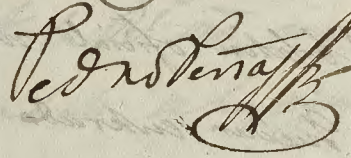 Pedro Peña